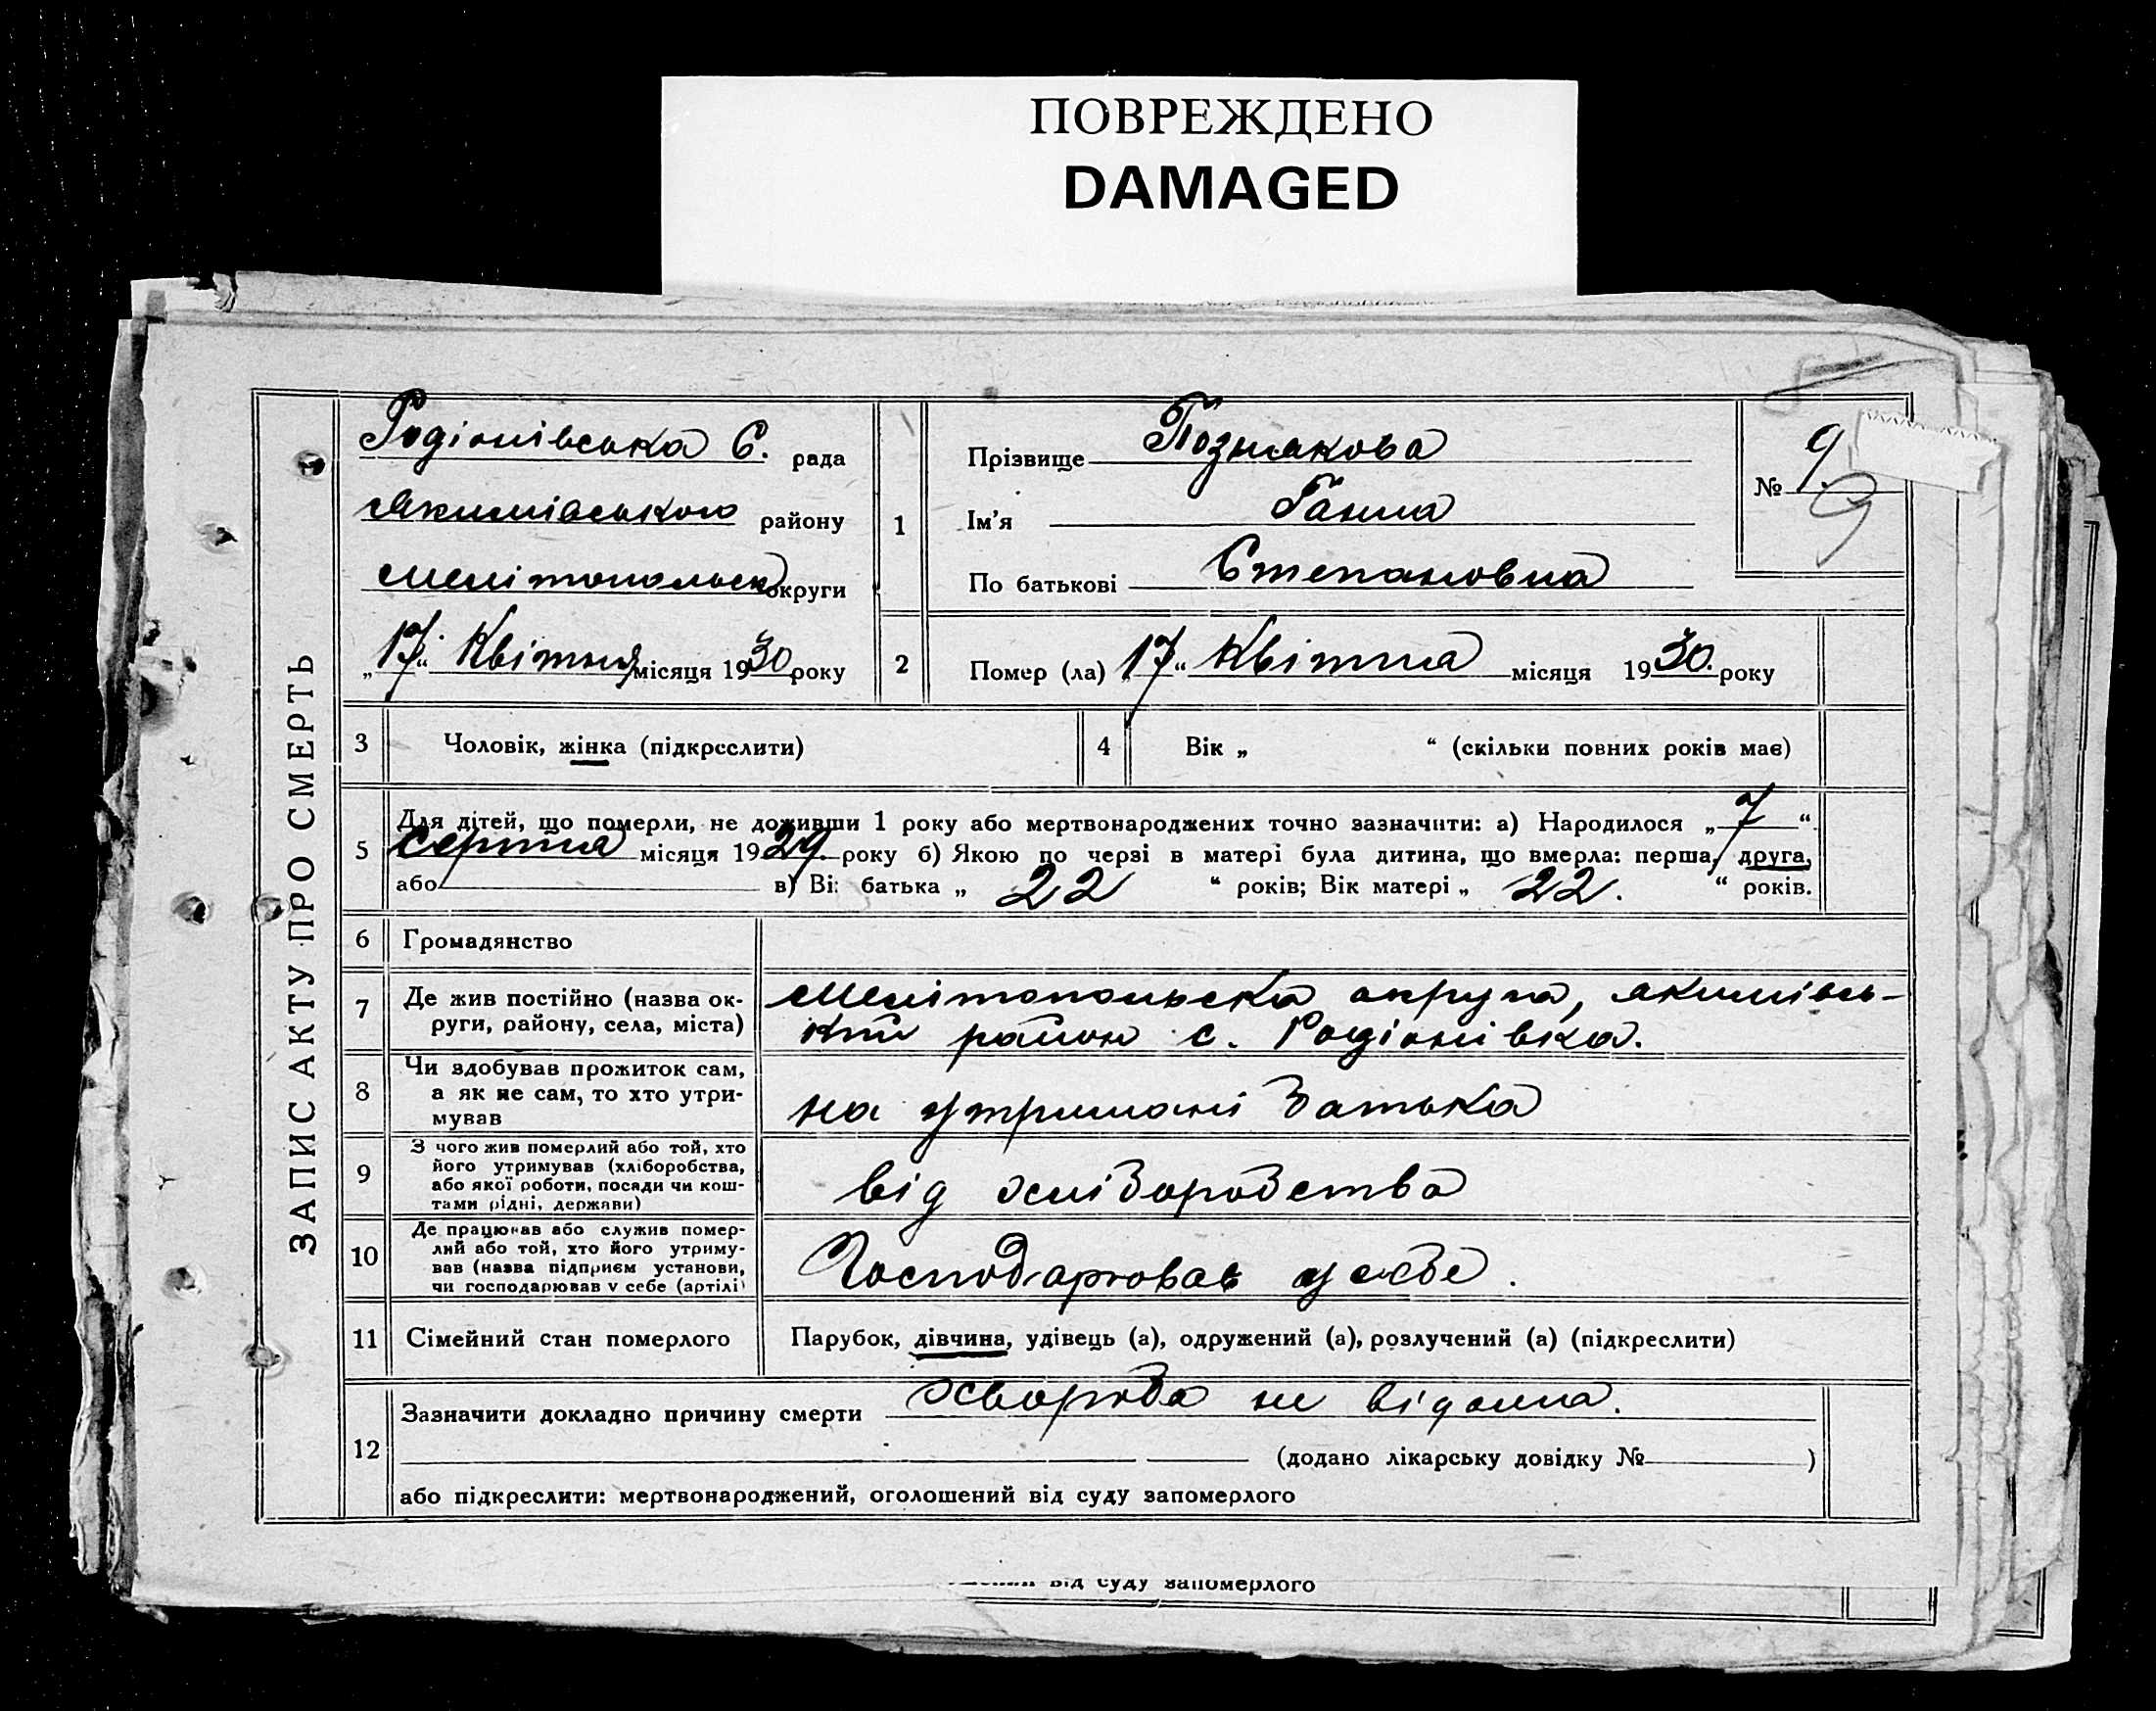 ПОВРЕЖДЕНО
DAMAGED
ЗАПИС АКТУ ПРО СМЕРТЬ
Родіонівська С. рада
Якимівського району
Мелітопольськ округи
„17“ Квітня місяця 1930 року
1
Прізвище Познякова
Ім'я Ганна
По батькові Степановна
№ 9.
9
2 Помер (ла) „17“ Квітня місяця 1930. року
3 Чоловік, жінка (підкреслити)
4 Вік „ “ (скільки повних років має)
5 Для дітей, що померли, не доживши 1 року або мертвонароджених точно зазначити: а) Народилося „7“
серпня місяця 1929. року б) Якою по черзі в матері була дитина, що вмерла: перша, друга,
або в) Ві: батька „ 22 “ років; Вік матері „ 22. “ років.
6 Громадянство
7 Де жив постійно (назва ок-
руги, району, села, міста)
Мелітопольська округа, якимівсь-
кий район с. Родіонівка.
8 Чи здобував прожиток сам,
а як не сам, то хто утри-
мував
на утримані батька
9 З чого жив померлий або той, хто
його утримував (хліборобства,
або якої роботи, посади чи кош-
тами рідні, держави)
від хліборобства
10 Де працював або служив помер-
лий або той, хто його утриму-
вав (назва підприєм установи,
чи господарював у себе (артілі)
Господарював у себе.
11 Сімейний стан померлого
Парубок, дівчина, удівець (а), одружений (а), розлучений (а) (підкреслити)
12 Зазначити докладно причину смерти хвороба не відома.
(додано лікарську довідку № )
або підкреслити: мертвонароджений, оголошений від суду запомерлого
від суду запомерлого